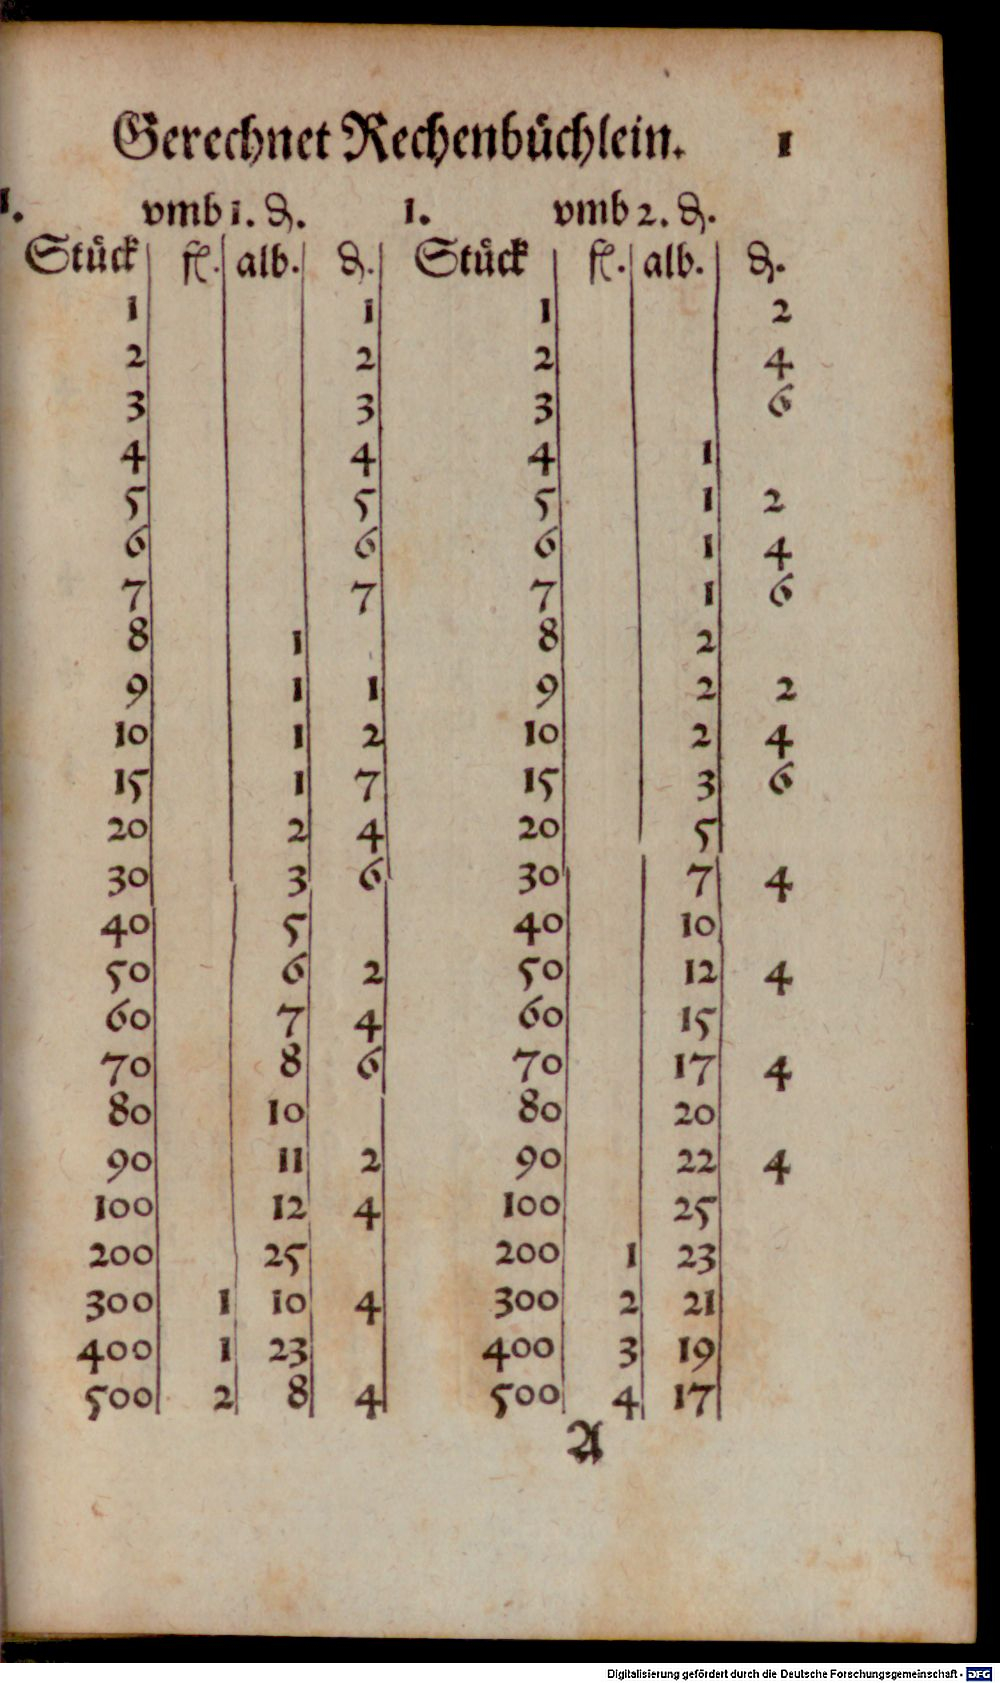 Gerechnet Rechenbüchlein. 1
1. vmb 1. ₰. 1. vmb 2. ₰.
Stück fl. alb. ₰. Stück fl. alb. ₰.
1 1 1 2
2 2 2 4
3 3 3 6
4 4 4 1
5 5 5 1 2
6 6 6 1 4
7 7 7 1 6
8 1 8 2
9 1 1 9 2 2
10 1 2 10 2 4
15 1 7 15 3 6
20 2 4 20 5
30 3 6 30 7 4
40 5 40 10
50 6 2 50 12 4
60 7 4 60 15
70 8 6 70 17 4
80 10 80 20
90 11 2 90 22 4
100 12 4 100 25
200 25 200 1 23
300 1 10 4 300 2 21
400 1 23 400 3 19
500 2 8 4 500 4 17
A
Digitalisierung gefördert durch die Deutsche Forschungsgemeinschaft - DFG